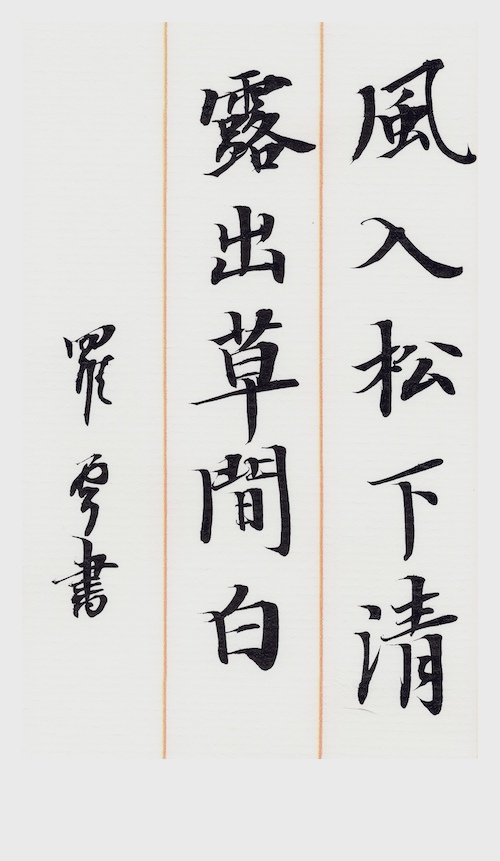 風入松下清
露出草間白
羅雲書